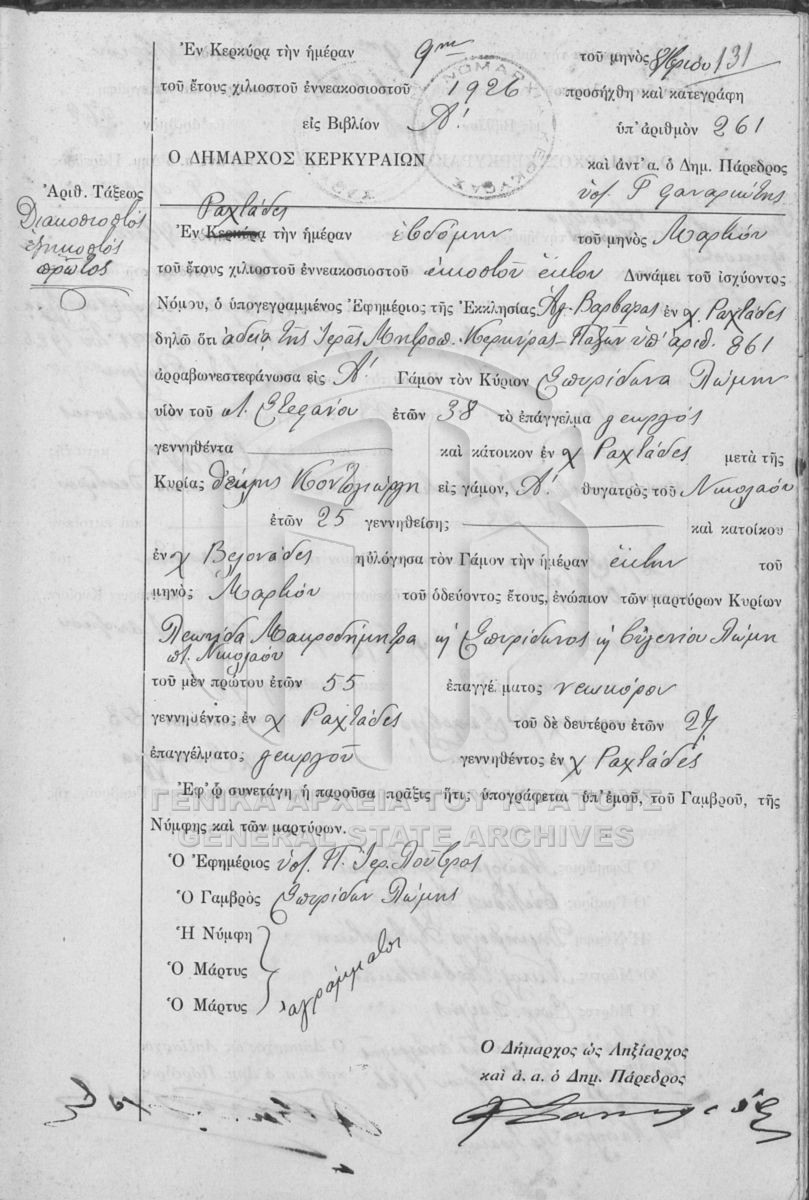 131
Ἐν Κερκύρᾳ τὴν ἡμέραν 9ην τοῦ μηνὸς
τοῦ ἔτους χιλιοστοῦ ἐννεακοσιοστοῦ 1926 προσήχθη καὶ κατεγράφη
εἰς Βιβλίον Α! ὑπ' ἀριθμὸν 261
Ο ΔΗΜΑΡΧΟΣ ΚΕΡΚΥΡΑΙΩΝ καὶ ἀντ' α. ὁ Δημ. Πάρεδρος
Ἀριθ. Τάξεως
Διακοσιοστὸς
ἑξηκοστὸς
πρῶτος
Ραχτάδες
Ἐν Κερκύρᾳ τὴν ἡμέραν ἑβδόμην τοῦ μηνὸς Μαρτίου
τοῦ ἔτους χιλιοστοῦ ἐννεακοσιοστοῦ εἰκοστοῦ ἕκτου Δυνάμει τοῦ ἰσχύοντος
Νόμου, ὁ ὑπογεγραμμένος Ἐφημέριος τῆς Ἐκκλησίας Ἁγ. Βαρβάρας ἐν χ. Ραχτάδες
δηλῶ ὅτι ἀδείᾳ τῆς Ἱερᾶς Μητροπ. Κερκύρας - Παξῶν ὑπ' ἀριθ. 861
ἀρραβωνεστεφάνωσα εἰς Α! Γάμον τὸν Κύριον Σπυρίδωνα Λώμην
υἱὸν τοῦ Στεφάνου ἐτῶν 38 τὸ ἐπάγγελμα γεωργὸς
γεννηθέντα καὶ κάτοικον ἐν χ Ραχτάδες μετὰ τῆς
Κυρίας Κοντογιώργη εἰς γάμον, Α! θυγατρὸς τοῦ Νικολάου
ἐτῶν 25 γεννηθείσης καὶ κατοίκου
ἐν χ Βελονάδες ηὐλόγησα τὸν Γάμον τὴν ἡμέραν ἕκτην τοῦ
μηνὸς Μαρτίου τοῦ ὁδεύοντος ἔτους, ἐνώπιον τῶν μαρτύρων Κυρίων
Λεωνίδα Μακροδημήτρα ἢ Σπυρίδωνος ἢ Εὐγενίου Λώμη
Νικολάου
τοῦ μὲν πρώτου ἐτῶν 55 ἐπαγγέ ματος νεωκόρου
γεννηθέντος ἐν χ Ραχτάδες τοῦ δὲ δευτέρου ἐτῶν 27
ἐπαγγέλματος γεωργοῦ γεννηθέντος ἐν χ Ραχτάδες
Ἐφ' ᾧ συνετάγη ἡ παροῦσα πρᾶξις ἥτις ὑπογράφεται ὑπ' ἐμοῦ, τοῦ Γαμβροῦ, τῆς
ΓΕΝΙΚΑ ΑΡΧΕΙΑ ΤΟΥ ΚΡΑΤΟΥΣ
Νύμφης καὶ τῶν μαρτύρων.
GENERAL STATE ARCHIVES
Ὁ Ἐφημέριος ὑπ. Π. Ἱερ. Λούβρος
Ὁ Γαμβρὸς Σπυρίδων Λώμης
Ἡ Νύμφη
Ὁ Μάρτυς ἀγράμματοι
Ὁ Μάρτυς
Ὁ Δήμαρχος ὡς Ληξίαρχος
καὶ ἀ. α. ὁ Δημ. Πάρεδρος